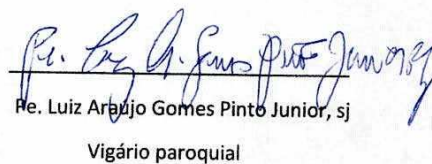 Pe. Luiz A. Gomes Pinto Junior, sj
Pe. Luiz Araujo Gomes Pinto Junior, sj
Vigário paroquial